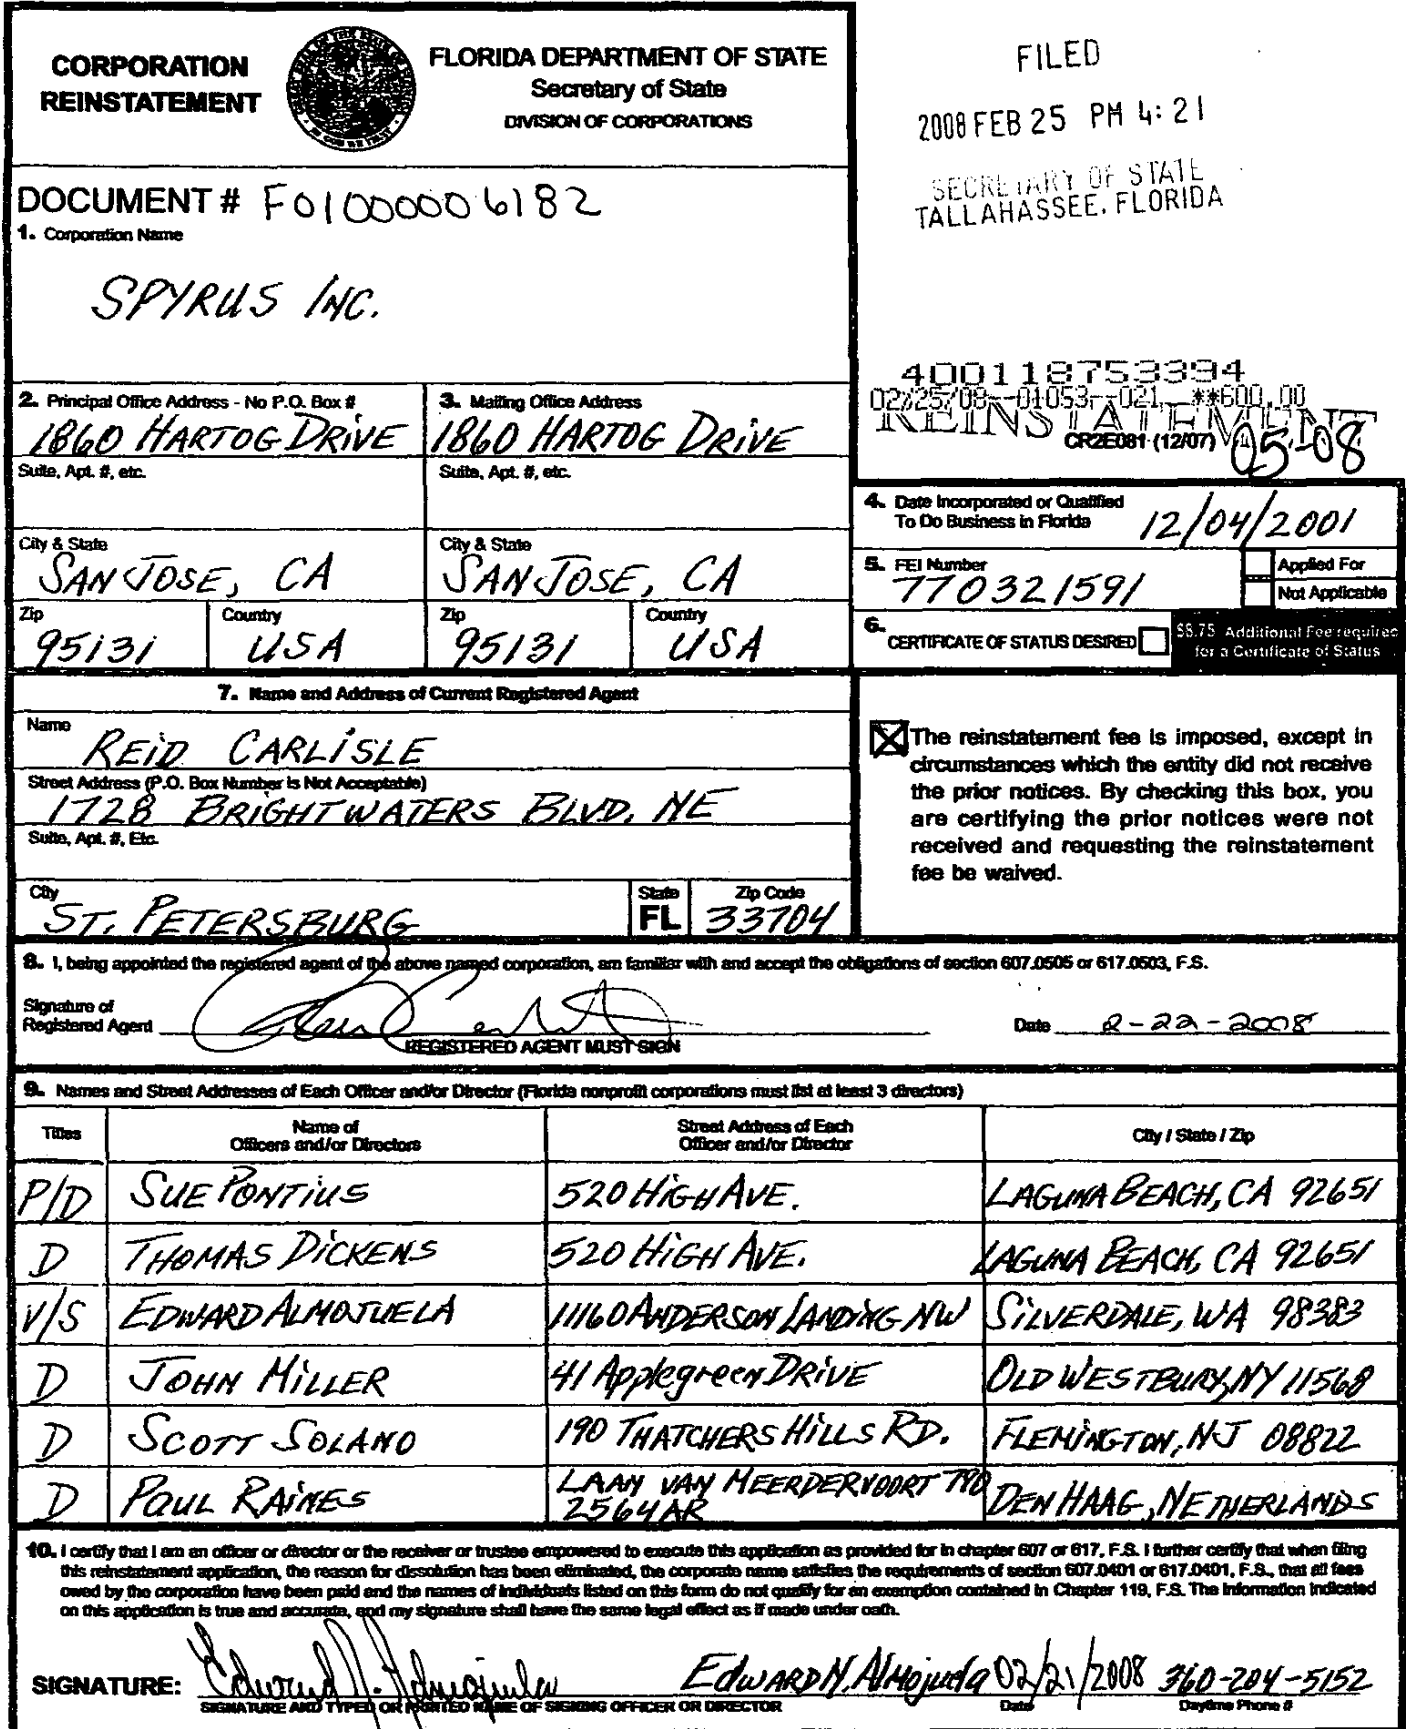 CORPORATION
REINSTATEMENT
FLORIDA DEPARTMENT OF STATE
Secretary of State
DIVISION OF CORPORATIONS
FILED
2008 FEB 25 PM 4:21
SECRETARY OF STATE
TALLAHASSEE, FLORIDA
DOCUMENT # F01000006182
1. Corporation Name
SPYRUS INC.
400118753394
02/25/08--01053--021 **600.00
REINSTATEMENT
CR2E081 (12/07)
05-08
2. Principal Office Address - No P.O. Box #
1860 HARTOG DRIVE
3. Mailing Office Address
1860 HARTOG DRIVE
Suite, Apt. #, etc.
Suite, Apt. #, etc.
City & State
SAN JOSE, CA
City & State
SAN JOSE, CA
Zip
95131
Country
USA
Zip
95131
Country
USA
4. Date Incorporated or Qualified
To Do Business in Florida
12/04/2001
5. FEI Number
770321591
Applied For
Not Applicable
6. CERTIFICATE OF STATUS DESIRED
$8.75 Additional Fee required
for a Certificate of Status
7. Name and Address of Current Registered Agent
Name
REID CARLISLE
Street Address (P.O. Box Number is Not Acceptable)
1728 BRIGHTWATERS BLVD. NE
Suite, Apt. #, Etc.
City
ST. PETERSBURG
State
FL
Zip Code
33704
The reinstatement fee is imposed, except in
circumstances which the entity did not receive
the prior notices. By checking this box, you
are certifying the prior notices were not
received and requesting the reinstatement
fee be waived.
8. I, being appointed the registered agent of the above named corporation, am familiar with and accept the obligations of section 607.0505 or 617.0503, F.S.
Signature of
Registered Agent
Date 2-22-2008
REGISTERED AGENT MUST SIGN
9. Names and Street Addresses of Each Officer and/or Director (Florida nonprofit corporations must list at least 3 directors)
Titles
Name of
Officers and/or Directors
Street Address of Each
Officer and/or Director
City / State / Zip
P/D SUE PONTIUS 520 HIGH AVE. LAGUNA BEACH, CA 92651
D THOMAS DICKENS 520 HIGH AVE. LAGUNA BEACH, CA 92651
V/S EDWARD ALMOJUELA 11160 ANDERSON LANDING NW SILVERDALE, WA 98383
D JOHN MILLER 41 Applegreen DRIVE OLD WESTBURY, NY 11568
D SCOTT SOLANO 190 THATCHERS HILLS RD. FLEMINGTON, NJ 08822
D PAUL RAINES LAAN VAN MEERDERVOORT 790
2564AR DEN HAAG, NETHERLANDS
10. I certify that I am an officer or director or the receiver or trustee empowered to execute this application as provided for in chapter 607 or 617, F.S. I further certify that when filing
this reinstatement application, the reason for dissolution has been eliminated, the corporate name satisfies the requirements of section 607.0401 or 617.0401, F.S., that all fees
owed by the corporation have been paid and the names of individuals listed on this form do not qualify for an exemption contained in Chapter 119, F.S. The information indicated
on this application is true and accurate, and my signature shall have the same legal effect as if made under oath.
SIGNATURE: Edward N. Almojuela EDWARD N. Almojuela 02/21/2008 360-204-5152
SIGNATURE AND TYPED OR PRINTED NAME OF SIGNING OFFICER OR DIRECTOR
Date
Daytime Phone #